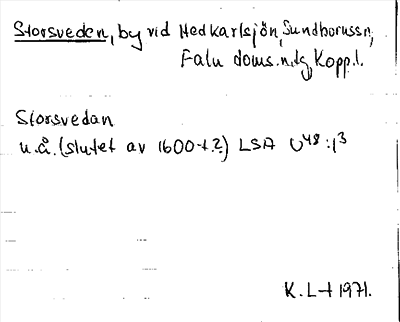 Storsveden, by vid Hedkarlsjön, Sundbornssn,
Falu doms.n.dg, Kopp.l.
Storsvedan
u.å. (slutet av 1600-t.?) LSA U48:1³
K.L-t 1971.